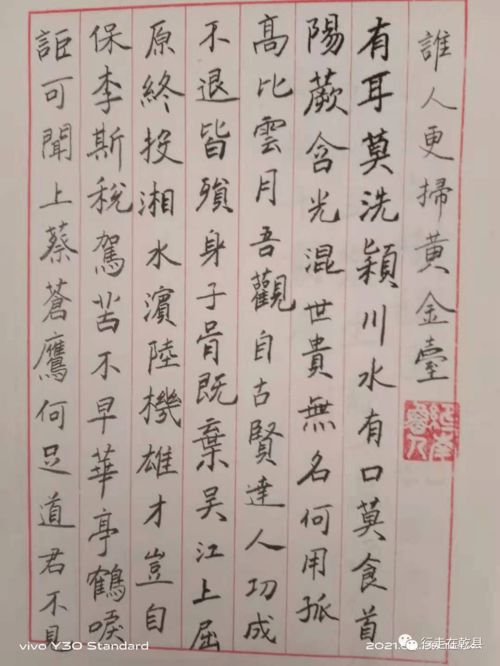 誰人更掃黃金臺
有耳莫洗穎川水有口莫食首
陽蕨含光混世貴無名何用孤
高比雲月吾觀自古賢達人功成
不退皆殞身子胥既棄吳江上屈
原終投湘水濱陸機雄才豈自
保李斯稅駕苦不早華亭鶴唳
詎可聞上蔡蒼鷹何足道君不見
vivo Y30 Standard
行走在乾县